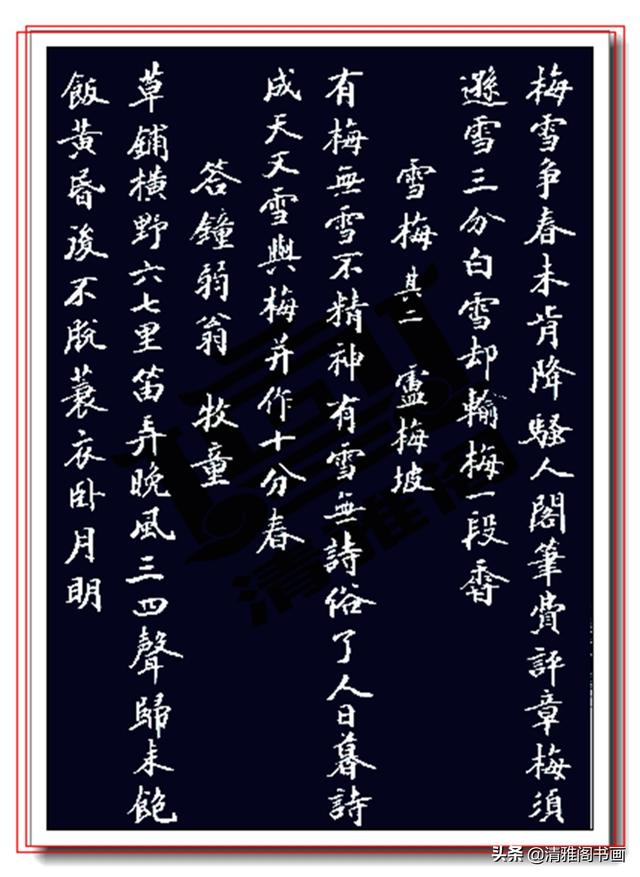 梅雪争春未肯降騷人閣筆賞評章梅須
遜雪三分白雪却輸梅一段香
雪梅 其二 盧梅坡
有梅無雪不精神有雪無詩俗了人日暮詩
成天又雪與梅并作十分春
答鐘弱翁 牧童
草鋪橫野六七里笛弄晚風三四聲歸来飽
飯黃昏後不脱蓑衣卧月明
清雅阁
头条 @清雅阁书画